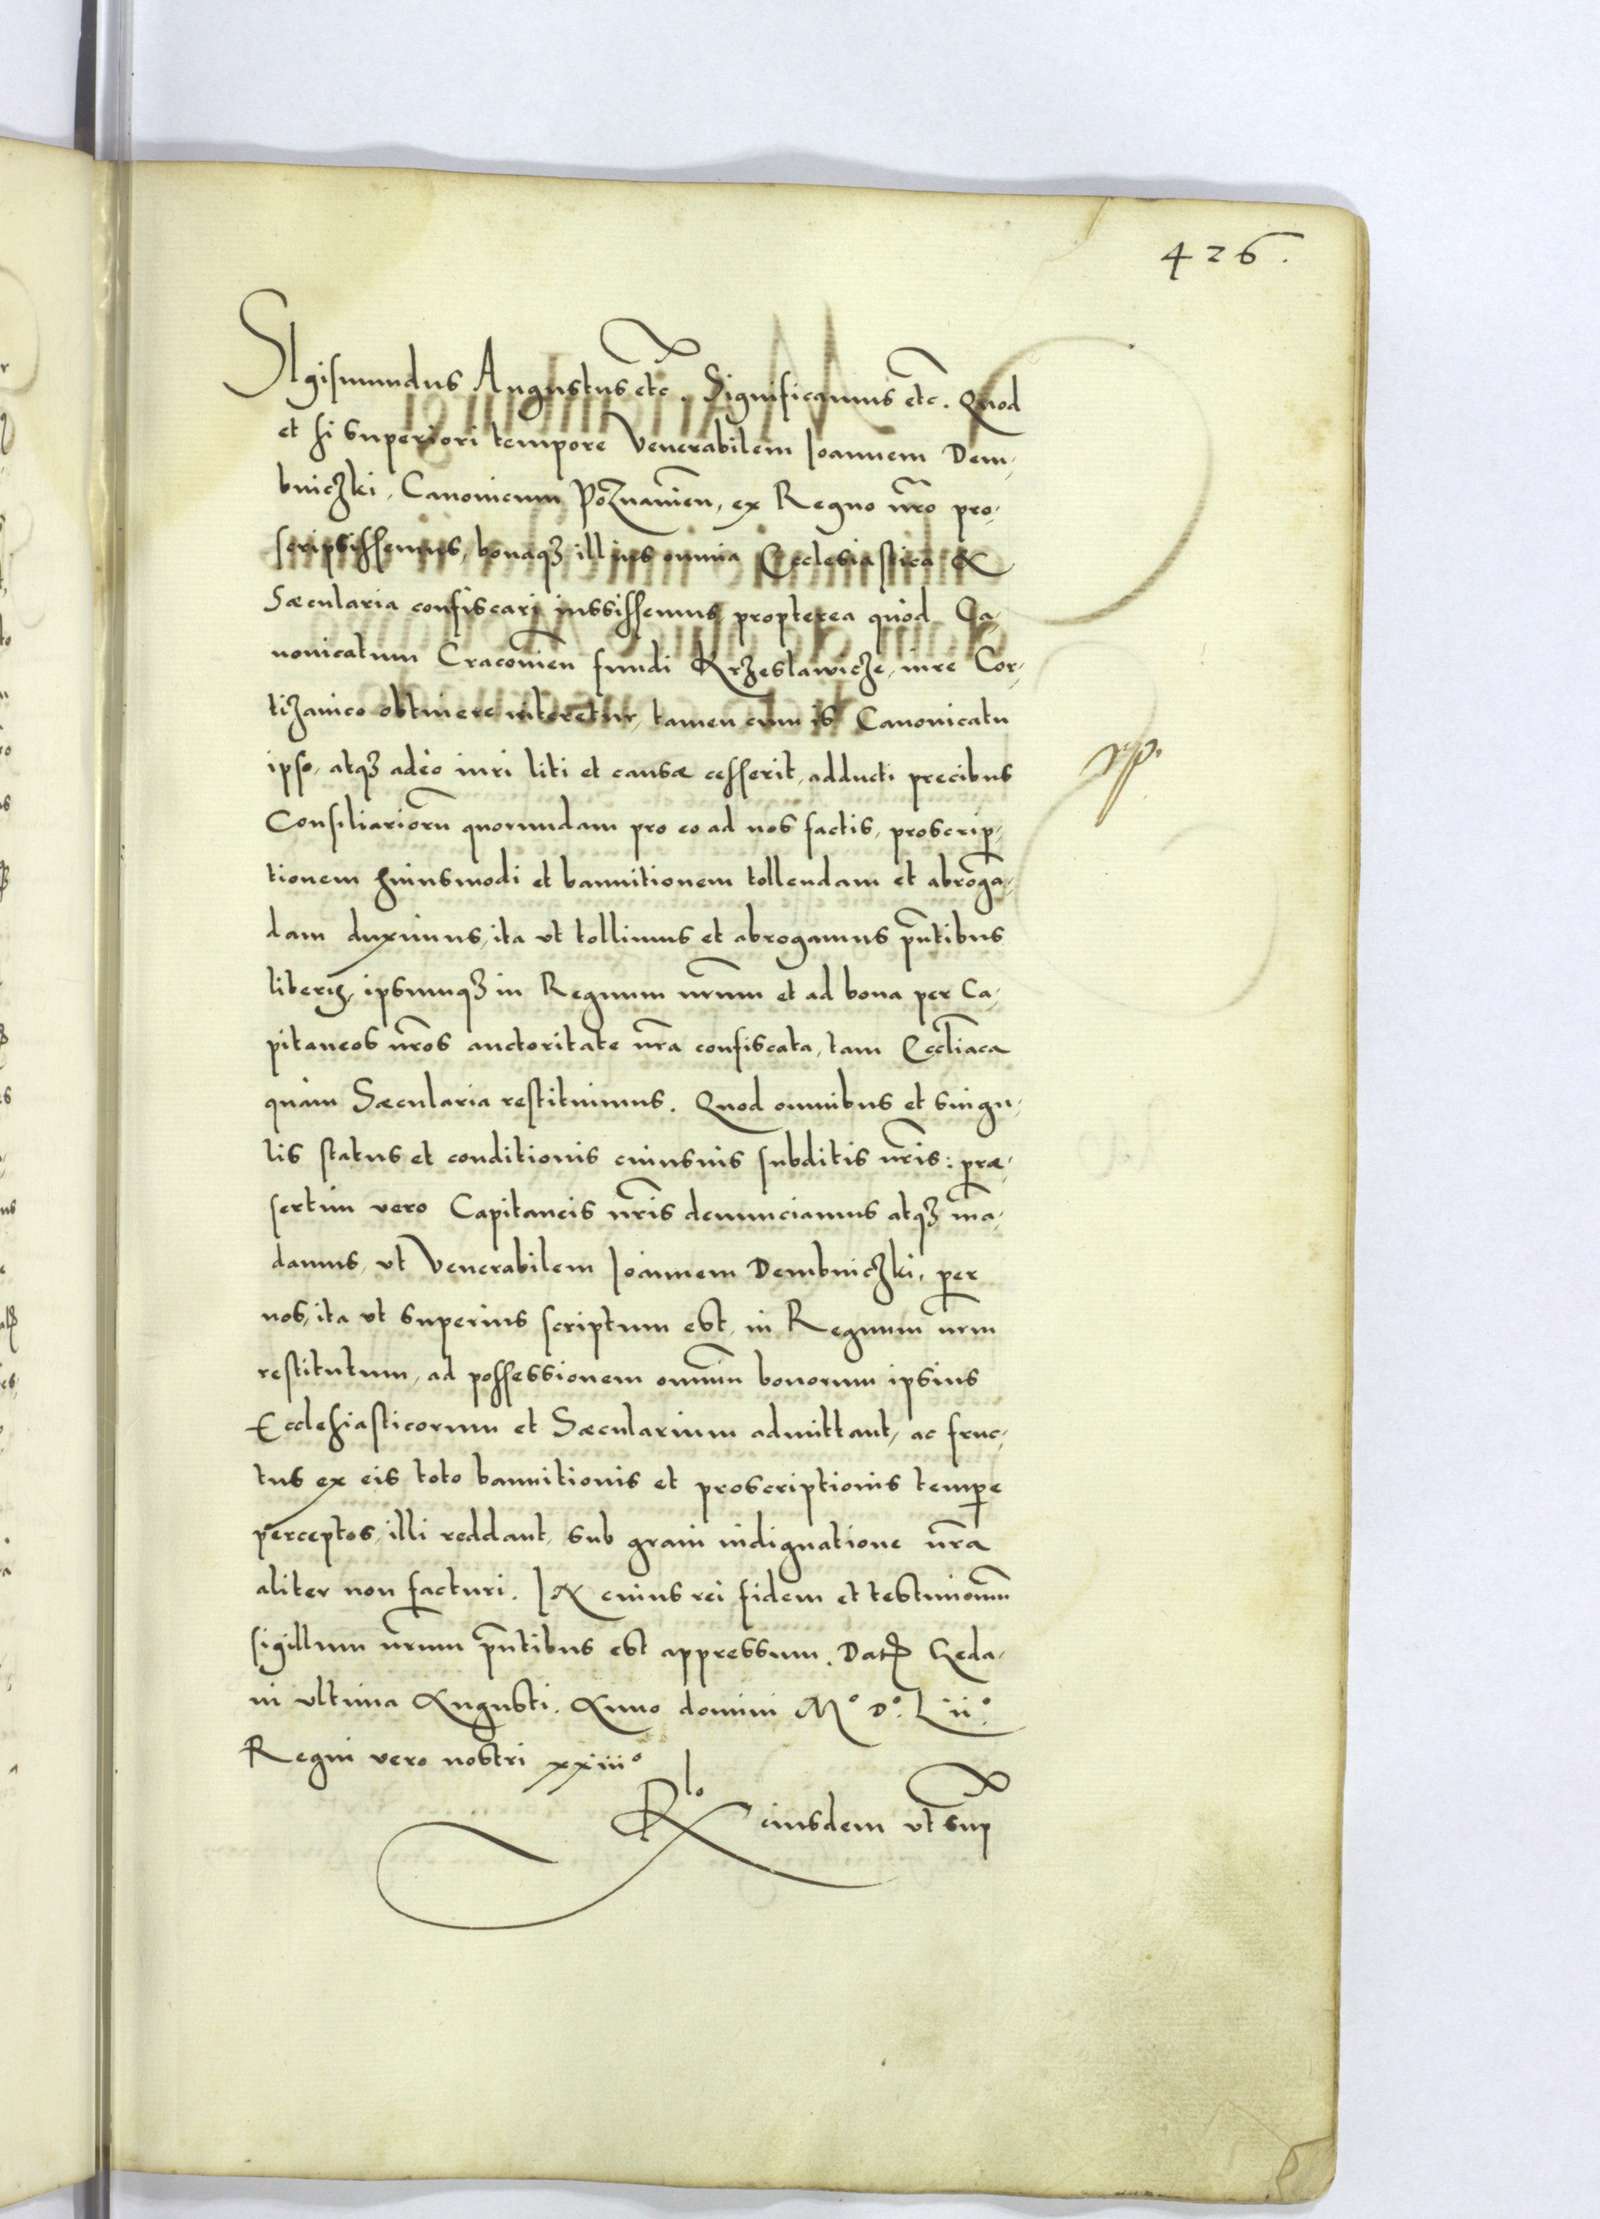 426.
SIgismundus Augustus etc. Significamus etc. Quod
et si superiori tempore Venerabilem Ioannem Dem,
bniczki, Canonicum Poznanien, ex Regno nro pro,
scripsissemus, bonaqz illius omnia Ecclesiastica &
Sæcularia confiscari iussissemus, propterea quòd Ca,
nonicatum Cracovien fundi Krzeslawicze, iure Cor,
tizanico obtinere niteretur, tamen cum is Canonicatu
ipso, atqz adeò iuri liti et causæ cesserit, adducti precibus
Consiliarioru quorundam pro eo ad nos factis, proscrip,
tionem huiusmodi et bannitionem tollendam et abroga,
dam duximus, ita ut tollimus et abrogamus pntibus
literis, ipsumqz in Regnum nrum et ad bona per Ca,
pitaneos nros auctoritate nra confiscata, tam Ecctiaca
quàm Sæcularia restituimus. Quod omnibus et singu,
lis status et conditionis cuiusuis subditis nris: præ,
sertim vero Capitaneis nris denunciamus atqz ma,
damus, ut Venerabilem Ioannem Dembniczki, per
nos, ita ut superius scriptum est, in Regnum nrm
restitutum, ad possessionem omnium bonorum ipsius
Ecclesiasticorum et Sæcularium admittant, ac fruc,
tus ex eis toto bannitionis et proscriptionis tempe
perceptos, illi reddant, sub graui indignatione nra
aliter non facturi. IN cuius rei fidem et testimonm
sigillum nrum pntibus est appressum. Dat Geda,
ni ultima Augusti. Anno domini Mº Dº Liiº
Regni vero nostri xxiiiº
Rlo eiusdem ut sup